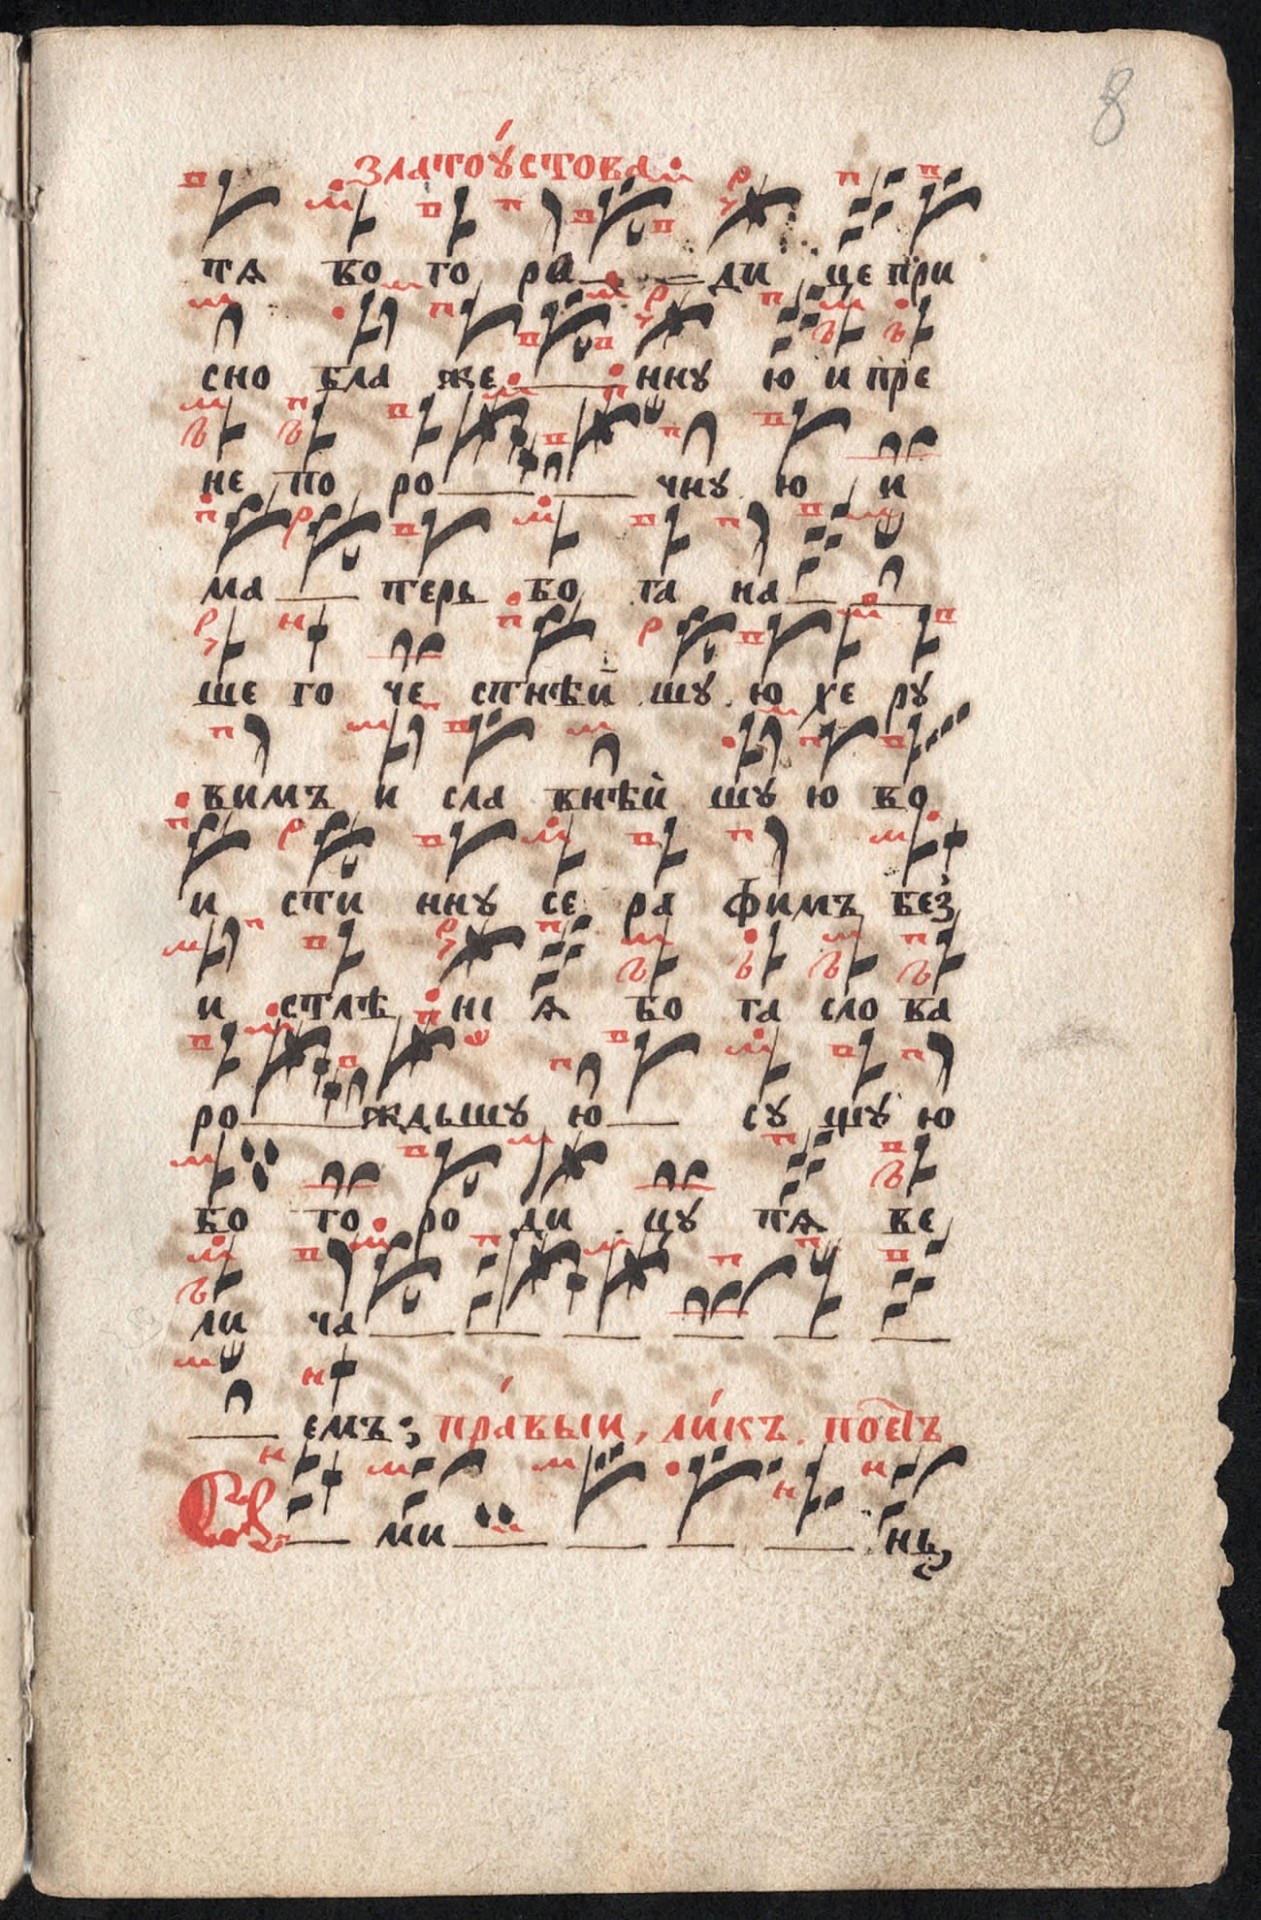 8
златоꙋ́стова
тѧ бо го ро ди це при
сно бла же ннꙋ ю и пре
не по ро чнꙋ ю и
ма терь бо га на
ше го че стнѣй шꙋ ю хе рꙋ
вимъ и сла внѣй шꙋ ю во
и сти ннꙋ се ра фимъ без̾
и стлѣ ні ѧ бо га сло ва
ро ждьшꙋ ю сꙋ щꙋ ю
бо го ро ди цꙋ тѧ ве
ли ча
емъ; пра́выи, ли́къ. пое҄тъ
А ми нь,